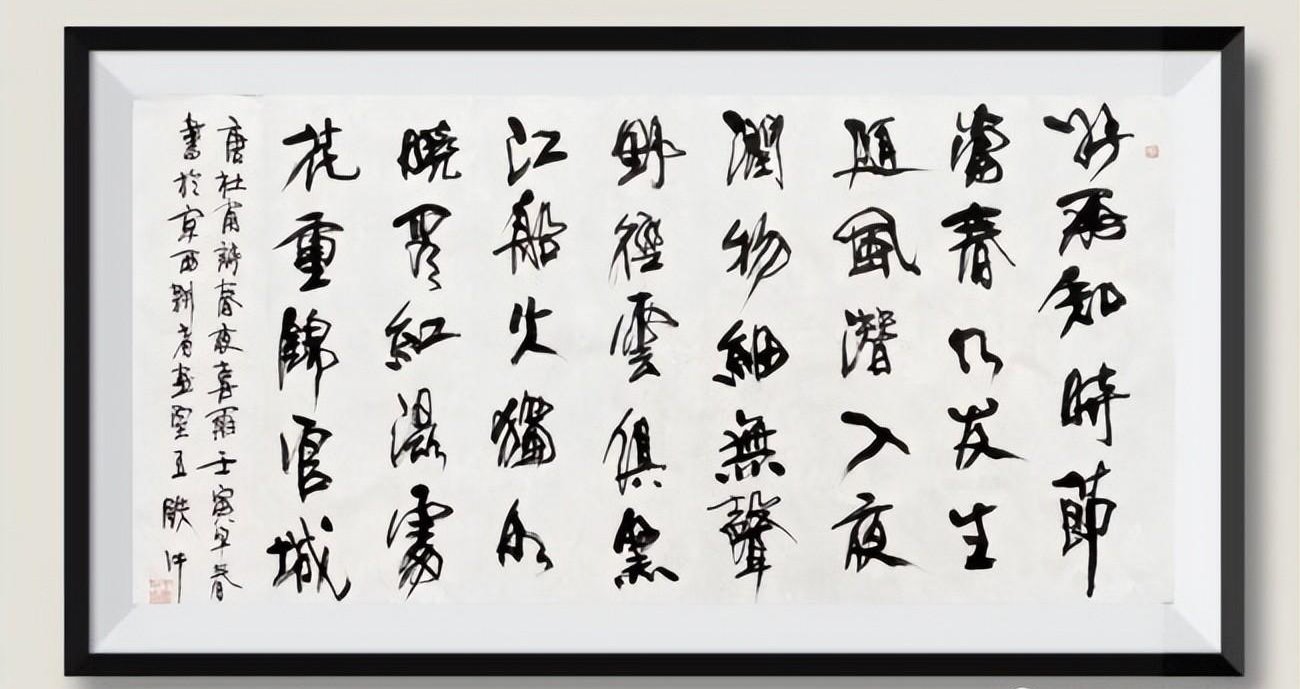 好雨知時節
當春乃发生
随風潛入夜
潤物細無聲
野徑雲俱黑
江船火獨明
曉看紅濕處
花重錦官城
唐杜甫詩春夜喜雨壬寅早春
書於京西畫室王鉄牛